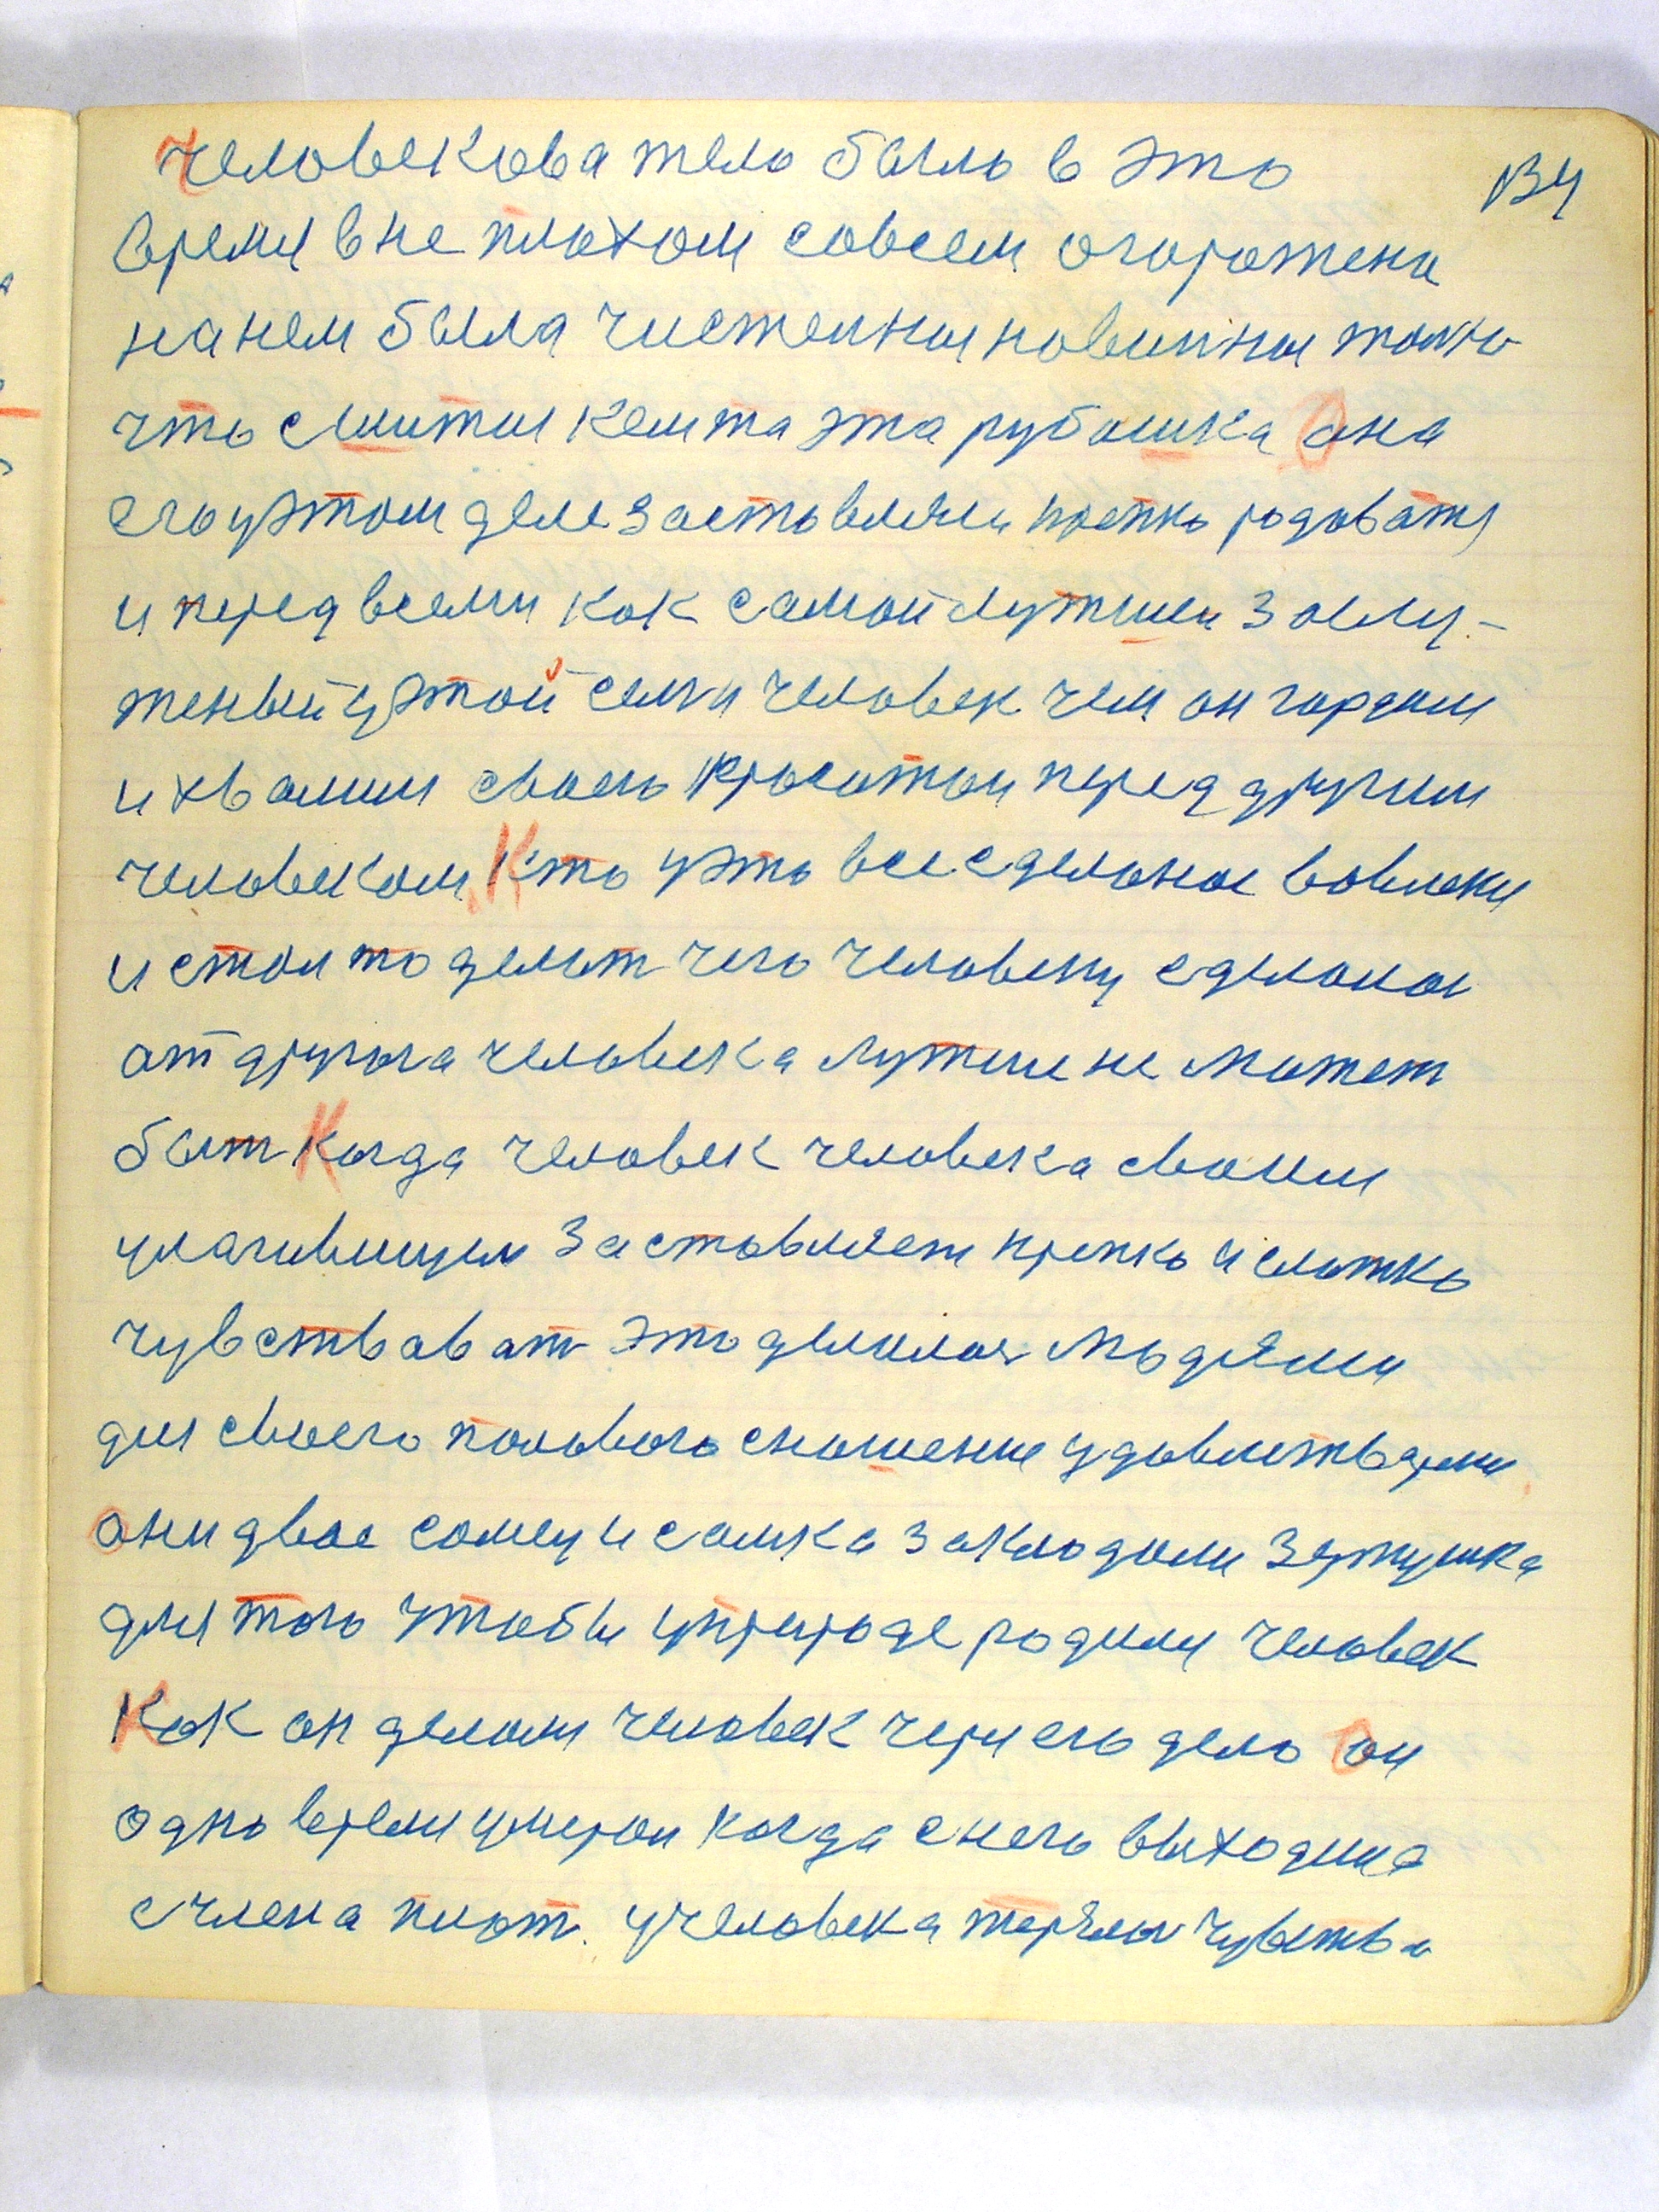 134
Человекова тело было в это
время в не плохом совсем огорожена
на нем была чистенькая новинькая толко
что сшитая кемта эта рубашка она
его у этом деле заставляла крепко радоватя
и перед всеми как самой лутший заслу-
женый у этой семи человек чем он гордился
и хвалился своею красотой перед другим
человеком Кто у это все сделаное вовлеки
и стал то делат чего человеку сделаное
от другога человека лутше не может
быт Когда человек человека своим
заставляет крепко и слатко
чувствават это делалось людями
для своего половога сношение удовлитваряли
они двое самец и самка закладали зярнушка
для того чтобы у природе родился человек
Как он делался человек через его дело он
одно время умерал когда с него выходила
с члена плот. у человека терялось чуства